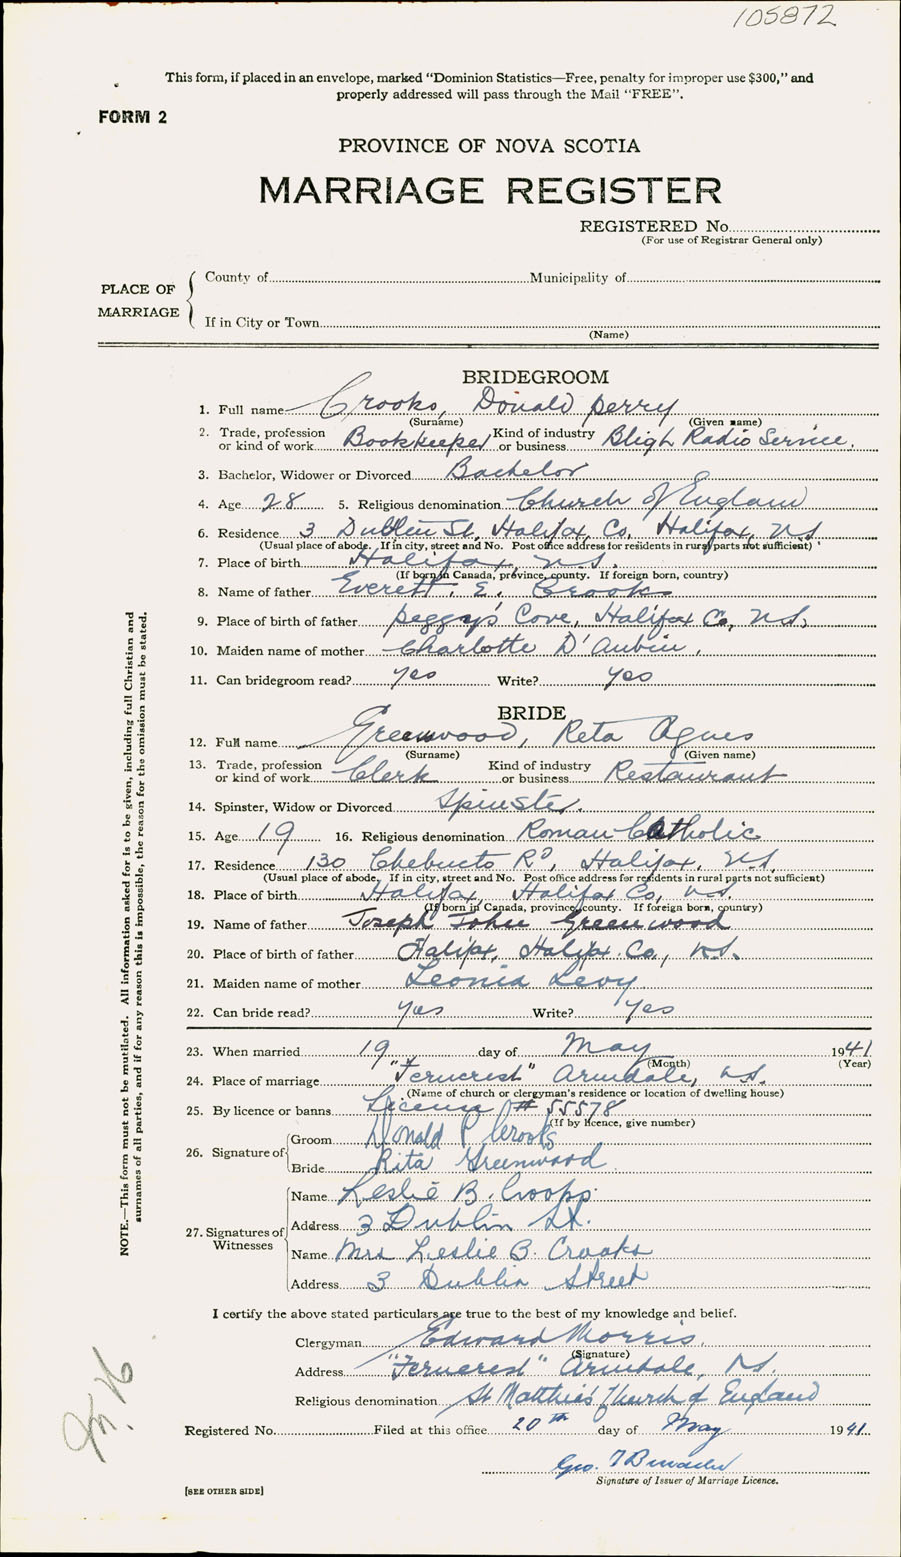 105872
This form, if placed in an envelope, marked “Dominion Statistics—Free, penalty for improper use $300,” and
properly addressed will pass through the Mail “FREE”.
FORM 2
PROVINCE OF NOVA SCOTIA
MARRIAGE REGISTER
REGISTERED No.
(For use of Registrar General only)
PLACE OF MARRIAGE
County of Municipality of
If in City or Town
(Name)
BRIDEGROOM
1. Full name Crooks, Donald Perry
(Surname) (Given name)
2. Trade, profession or kind of work Bookkeeper Kind of industry or business Bligh Radio Service.
3. Bachelor, Widower or Divorced Bachelor
4. Age 28 5. Religious denomination Church of England
6. Residence 3 Dublin St, Halifax, Co, Halifax, N.S.
(Usual place of abode. If in city, street and No. Post office address for residents in rural parts not sufficient)
7. Place of birth Halifax, N.S.
(If born in Canada, province, county. If foreign born, country)
8. Name of father Everett. E. Crooks
9. Place of birth of father Peggy's Cove, Halifax Co, N.S.
10. Maiden name of mother Charlotte D'Aubin.
11. Can bridegroom read? yes Write? yes
BRIDE
12. Full name Greenwood, Reta Agnes
(Surname) (Given name)
13. Trade, profession or kind of work Clerk Kind of industry or business Restaurant
14. Spinster, Widow or Divorced Spinster.
15. Age 19 16. Religious denomination Roman Catholic
17. Residence 130 Chebucto Rd, Halifax, N.S.
(Usual place of abode. If in city, street and No. Post office address for residents in rural parts not sufficient)
18. Place of birth Halifax, Halifax Co, N.S.
(If born in Canada, province, county. If foreign born, country)
19. Name of father Joseph John Greenwood
20. Place of birth of father Halifax, Halifax Co., N.S.
21. Maiden name of mother Leonia Levy
22. Can bride read? yes Write? yes
23. When married 19 day of May 1941
(Month) (Year)
24. Place of marriage "Ferncrest" Armdale, N.S.
(Name of church or clergyman's residence or location of dwelling house)
25. By licence or banns License # 55578
(If by licence, give number)
26. Signature of Groom Donald P Crooks
Bride Rita Greenwood
27. Signatures of Witnesses Name Leslie B. Crooks
Address 3 Dublin St.
Name Mrs Leslie B. Crooks
Address 3 Dublin Street
I certify the above stated particulars are true to the best of my knowledge and belief.
Clergyman Edward Morris.
(Signature)
Address "Ferncrest" Armdale, N.S.
Religious denomination St Matthias Church of England
Registered No. Filed at this office 20th day of May 1941.
Geo. T
Signature of Issuer of Marriage Licence.
[SEE OTHER SIDE]
NOTE.—This form must not be mutilated. All information asked for is to be given, including full Christian and
surnames of all parties, and if for any reason this is impossible, the reason for the omission must be stated.